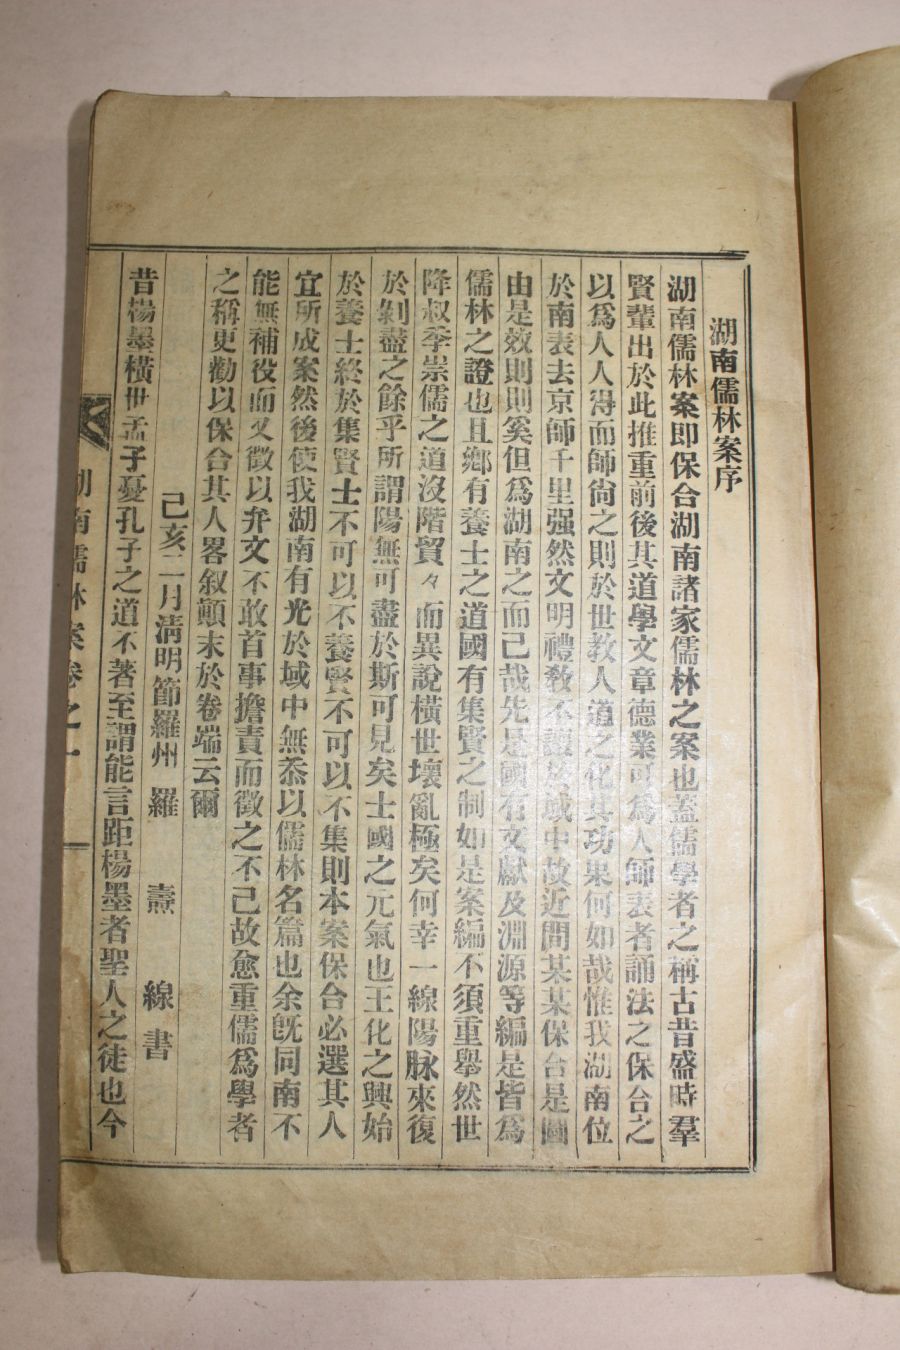 湖南儒林案序
湖南儒林案即保合湖南諸家儒林之案也蓋儒學者之稱古昔盛時羣
賢輩出於此推重前後其道學文章德業可爲人師表者誦法之保合之
以爲人人得而師尙之則於世教人道之化其功果何如哉惟我湖南位
於南表去京師千里强然文明禮教不讓於域中故近間某某保合是圖
由是效則則奚但爲湖南之而已哉先是國有文獻及淵源等編是皆爲
儒林之證也且鄉有養士之道國有集賢之制如是案編不須重擧然世
降叔季崇儒之道沒階貿々而異說橫世壞亂極矣何幸一線陽脉來復
於剝盡之餘乎所謂陽無可盡於斯可見矣士國之元氣也王化之興始
於養士終於集賢士不可以不養賢不可以不集則本案保合必選其人
宜所成案然後使我湖南有光於域中無忝以儒林名篇也余旣同南不
能無補役而又徵以弁文不敢首事擔責而徵之不已故愈重儒爲學者
之稱更勸以保合其人畧叙顚末於卷端云爾
己亥二月淸明節羅州 羅 燾 線 書
昔楊墨橫世孟子憂孔子之道不著至謂能言距楊墨者聖人之徒也今
湖南儒林案卷之一